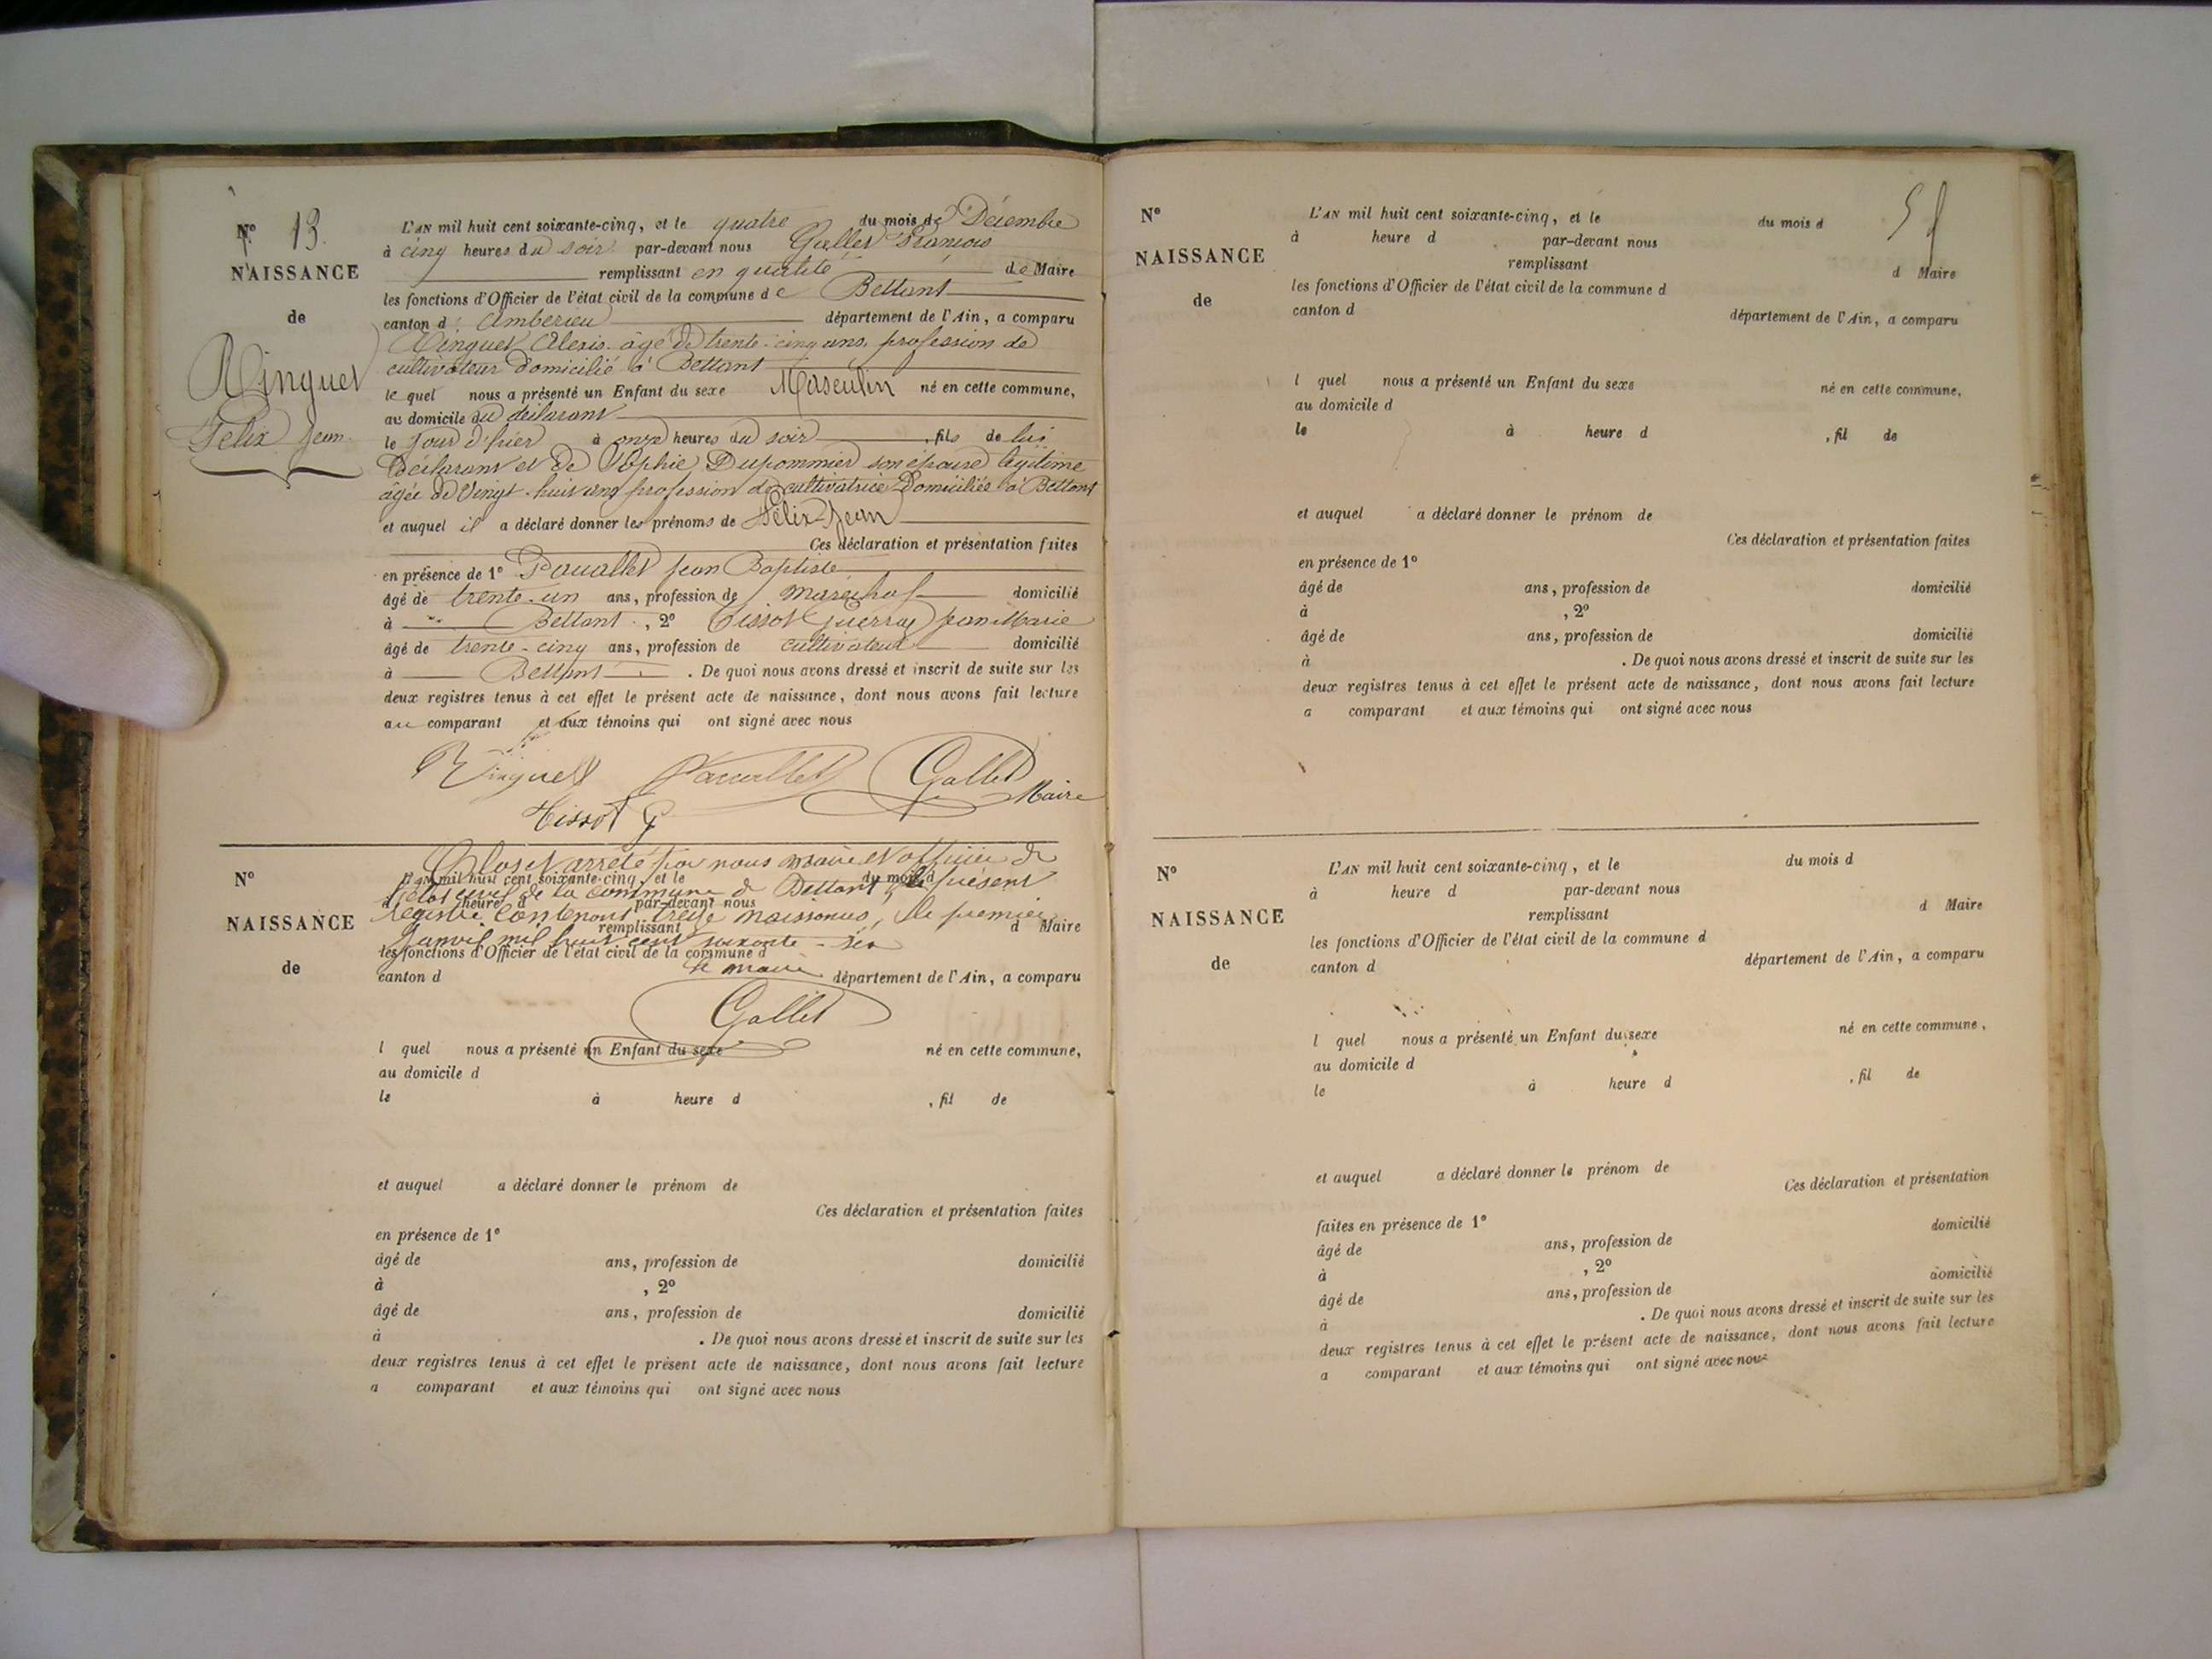 N° 13.
NAISSANCE
de
Ringuet
Félix Jean
L'AN mil huit cent soixante-cinq, et le quatre du mois de Décembre
à cinq heures du soir par-devant nous Gallet François
remplissant en qualité de Maire
les fonctions d'Officier de l'état civil de la commune de Bettant
canton d' Amberieu département de l'Ain, a comparu
Ringuet Alexis âgé de trente-cinq ans, profession de
cultivateur domicilié à Bettant
le quel nous a présenté un Enfant du sexe Masculin né en cette commune,
au domicile du déclarant
le jour d'hier à onze heures du soir, fils de lui
déclarant et de Sophie Dupommier son épouse légitime
âgée de vingt-huit ans profession de cultivatrice domiciliée à Bettant
et auquel il a déclaré donner les prénoms de Félix-Jean
Ces déclaration et présentation faites
en présence de 1° Pauallet Jean Baptiste
âgé de trente-un ans, profession de maréchal domicilié
à Bettant, 2° Tissot Guerraz Jean Marie
âgé de trente-cinq ans, profession de cultivateur domicilié
à Bettant. De quoi nous avons dressé et inscrit de suite sur les
deux registres tenus à cet effet le présent acte de naissance, dont nous avons fait lecture
au comparant et aux témoins qui ont signé avec nous
Ringuet Gallet
Maire
Tissot G
N°
NAISSANCE
de
Clos et arrêté par nous maire et officier de
L'AN mil huit cent soixante-cinq, et le du mois d
l'état civil de la commune de Bettant, le présent
à heure d par-devant nous
registre contenant treize naissances, le premier
remplissant d Maire
Janvier mil huit cent soixante-six
les fonctions d'Officier de l'état civil de la commune d
le maire
canton d département de l'Ain, a comparu
Gallet
l quel nous a présenté un Enfant du sexe né en cette commune,
au domicile d
le à heure d , fil de
et auquel a déclaré donner le prénom de
Ces déclaration et présentation faites
en présence de 1°
âgé de ans, profession de domicilié
à , 2°
âgé de ans, profession de domicilié
à . De quoi nous avons dressé et inscrit de suite sur les
deux registres tenus à cet effet le présent acte de naissance, dont nous avons fait lecture
a comparant et aux témoins qui ont signé avec nous
N°
NAISSANCE
de
L'AN mil huit cent soixante-cinq, et le du mois d
à heure d par-devant nous
remplissant d Maire
les fonctions d'Officier de l'état civil de la commune d
canton d département de l'Ain, a comparu
l quel nous a présenté un Enfant du sexe né en cette commune,
au domicile d
le à heure d , fil de
et auquel a déclaré donner le prénom de
Ces déclaration et présentation faites
en présence de 1°
âgé de ans, profession de domicilié
à , 2°
âgé de ans, profession de domicilié
à . De quoi nous avons dressé et inscrit de suite sur les
deux registres tenus à cet effet le présent acte de naissance, dont nous avons fait lecture
a comparant et aux témoins qui ont signé avec nous
N°
NAISSANCE
de
L'AN mil huit cent soixante-cinq, et le du mois d
à heure d par-devant nous
remplissant d Maire
les fonctions d'Officier de l'état civil de la commune d
canton d département de l'Ain, a comparu
l quel nous a présenté un Enfant du sexe né en cette commune,
au domicile d
le à heure d , fil de
et auquel a déclaré donner le prénom de
Ces déclaration et présentation
faites en présence de 1°
âgé de ans, profession de domicilié
à , 2°
âgé de ans, profession de domicilié
à . De quoi nous avons dressé et inscrit de suite sur les
deux registres tenus à cet effet le présent acte de naissance, dont nous avons fait lecture
a comparant et aux témoins qui ont signé avec nous